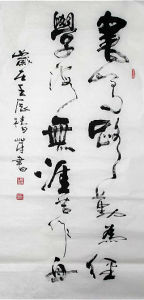 書山有路勤為徑
學海無涯苦作舟
歲在壬辰 書